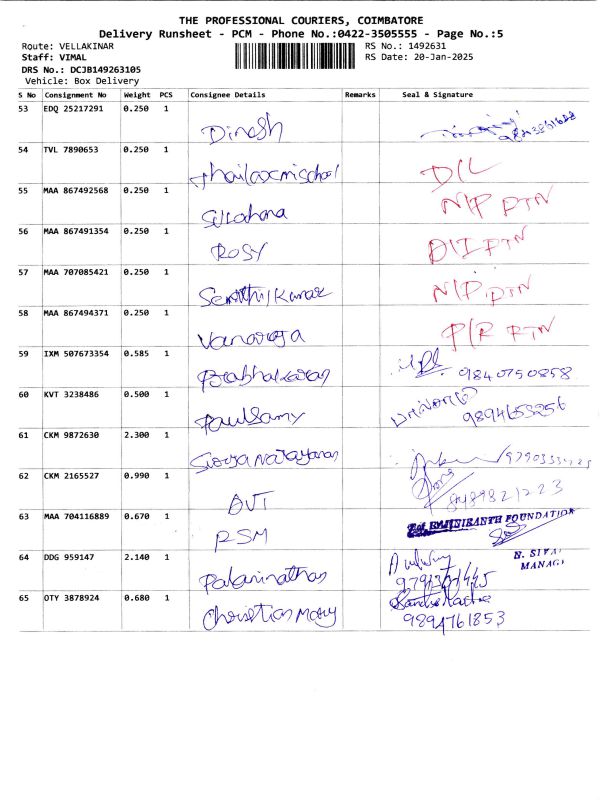 THE PROFESSIONAL COURIERS, COIMBATORE
Delivery Runsheet - PCM - Phone No.:0422-3505555 - Page No.:5
Route: VELLAKINAR RS No.: 1492631
Staff: VIMAL RS Date: 20-Jan-2025
DRS No.: DCJB149263105
Vehicle: Box Delivery
S No Consignment No Weight PCS Consignee Details Remarks Seal & Signature
53 EDQ 25217291 0.250 1
Dinesh
54 TVL 7890653 0.250 1
D/L
55 MAA 867492568 0.250 1
N/P RTN
56 MAA 867491354 0.250 1
ROSY RTN
57 MAA 707085421 0.250 1
Senthil Kumar N/P RTN
58 MAA 867494371 0.250 1
Vanaroja P/R RTN
59 IXM 507673354 0.585 1
Prabhakaran 9840750858
60 KVT 3238486 0.500 1
Paulsamy 9894653256
61 CKM 9872630 2.300 1
Surya Narayanan
62 CKM 2165527 0.990 1
8489821223
63 MAA 704116889 0.670 1
RAJINIKANTH FOUNDATION
RSM
64 DDG 959147 2.140 1
N. SIVA
MANAG
Palaninathan
65 OTY 3878924 0.680 1
Christian Mary 9894761853